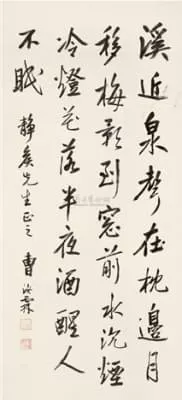 溪近泉聲在枕邊月
移梅影到窗前水沉煙
冷燈花落半夜酒醒人
不眠
靜矣先生正之 曹汝霖